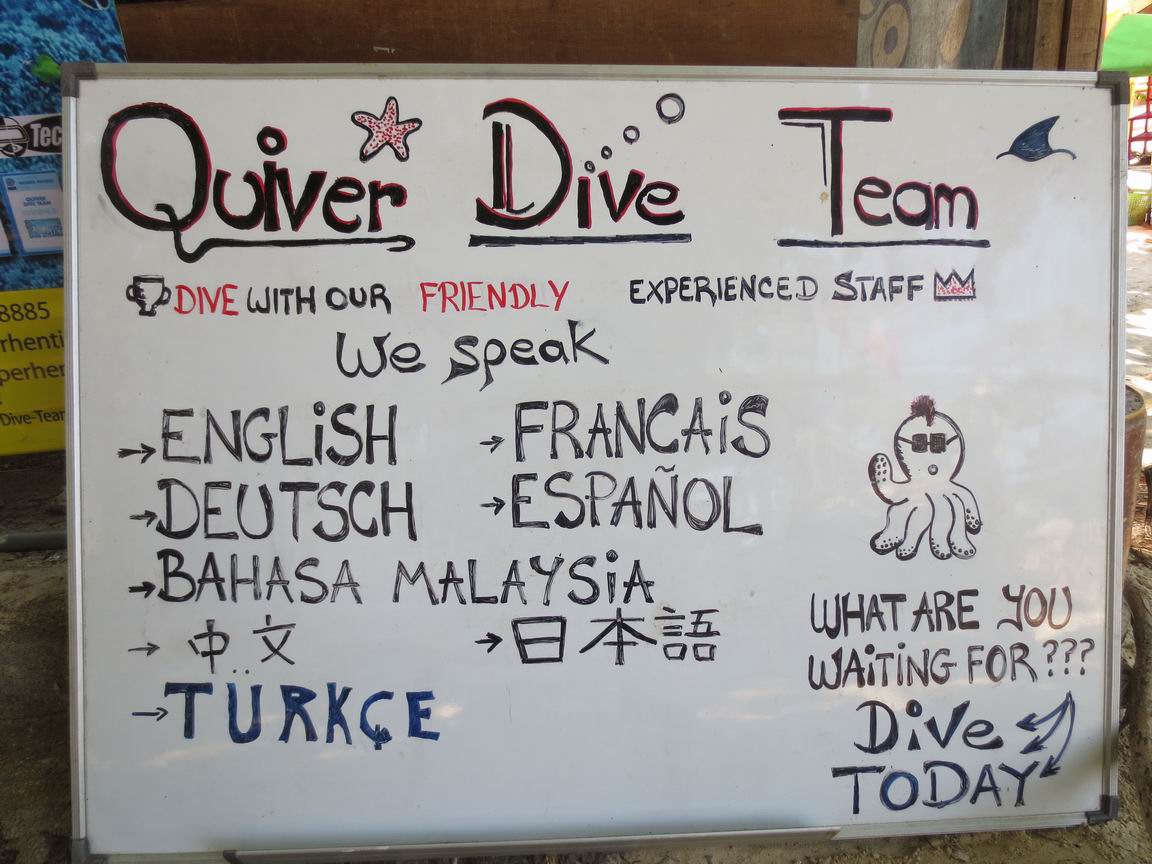 Quiver Dive Team
DIVE WITH OUR FRIENDLY EXPERIENCED STAFF
We speak
→ENGLiSH →FRANCAiS
→DEUTSCH →ESPAÑOL
→BAHASA MALAYSiA
→中文 →日本語
→TÜRKÇE
WHAT ARE YOU
WAiTiNG FOR???
DiVe
TODAY
Tec
QUIVER
DIVE TEAM
8885
rhenti
perher
Dive-Team